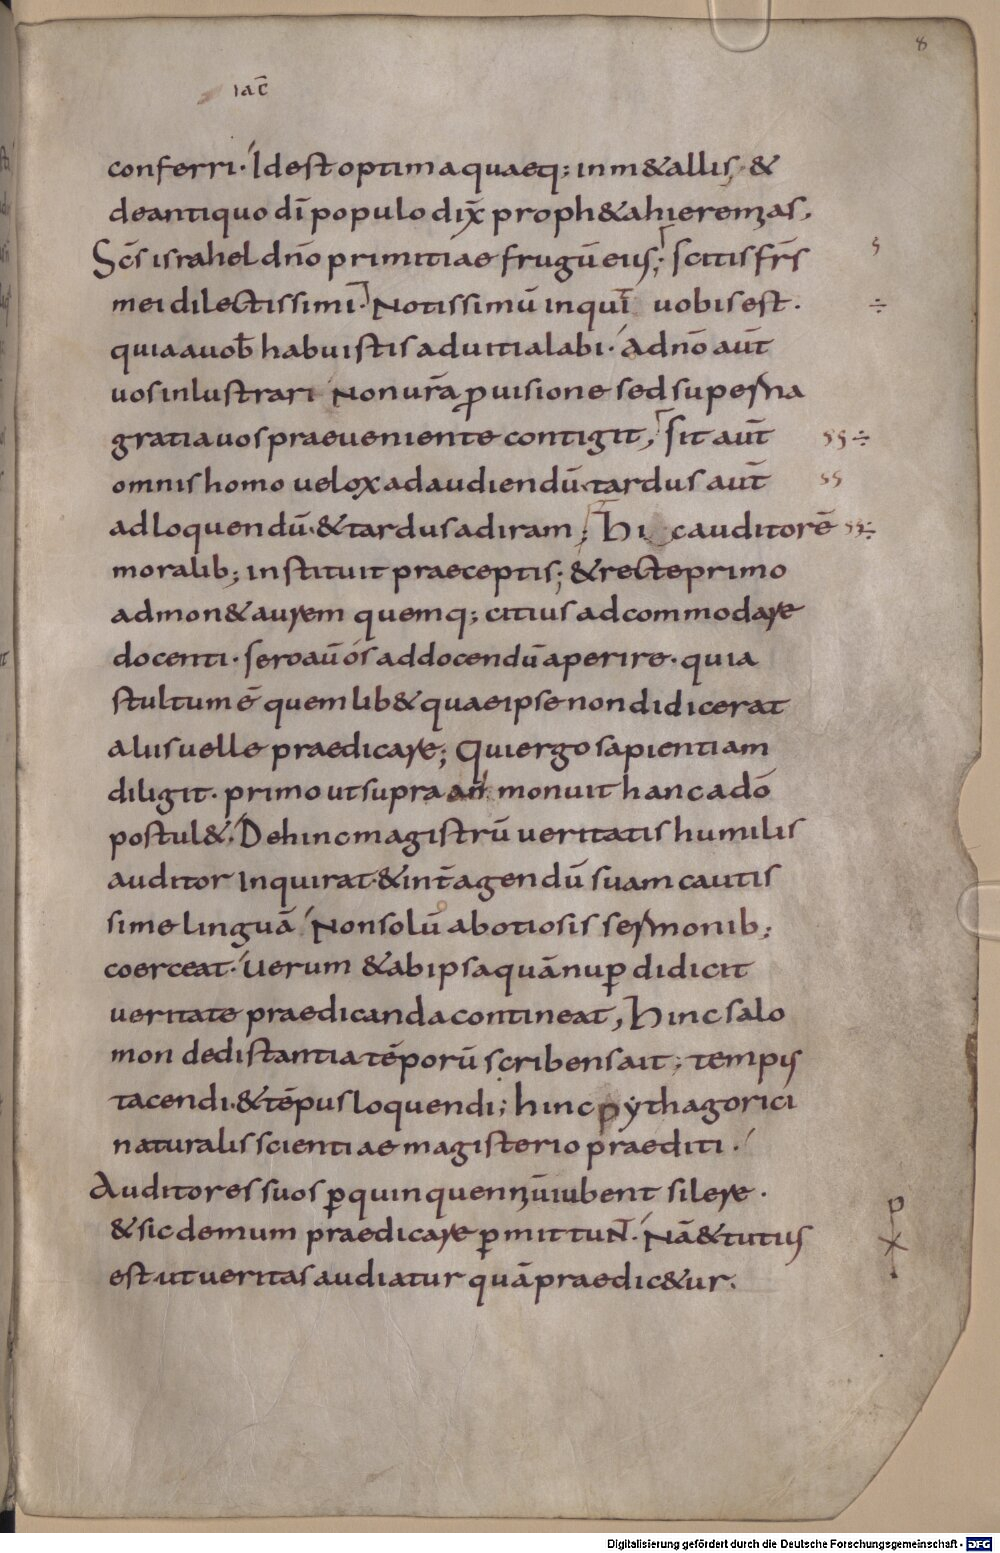 8
iac̄
conferri· Id est optima quaeq; in m&allis, &
de antiquo dī populo dix̄ proph&a hieremias,
Sc̄s israhel dn̄o primitiae frugū eius; scitis fr̄s
mei dilectissimi· Notissimū inquit̄ uobis est·
quia a uob̄ habuistis ad uitia labi· Ad n̄o aūt
uos inlustrari Non ur̄a ꝓuisione sed superna
gratia uos praeueniente contigit, sit aūt
omnis homo uelox ad audiendū· tardus aūt
ad loquendū· & tardus ad iram; Hic auditorē
moralib; instituit praeceptis; & recte primo
admon& aurem quemq; citius adcommodare
docenti· sero aū ós ad docendū aperire· quia
stultum ē quemlib& quae ipse non didicerat
aliis uelle praedicare; Qui ergo sapientiam
diligit· primo ut supra monuit hanc a dō
postul&· Dehinc magistrū ueritatis humilis
auditor Inquirat· & int̄ agendū suam cautis
sime linguā Non solū ab otiosis sermonib;
coerceat· Uerum & ab ipsa quā nuꝑ didicit
ueritate praedicanda contineat, Hinc salo
mon de distantia tēporū scribens ait; tempus
tacendi· & tēpus loquendi; hinc pẏthagorici
naturalis scientiae magisterio praediti·
Auditores suos ꝑ quinquenniū iubent silere·
& sic demum praedicare ꝑmittuN̄· Nā & tutius
est· ut ueritas audiatur quā praedic&ur·
Digitalisierung gefördert durch die Deutsche Forschungsgemeinschaft - DFG